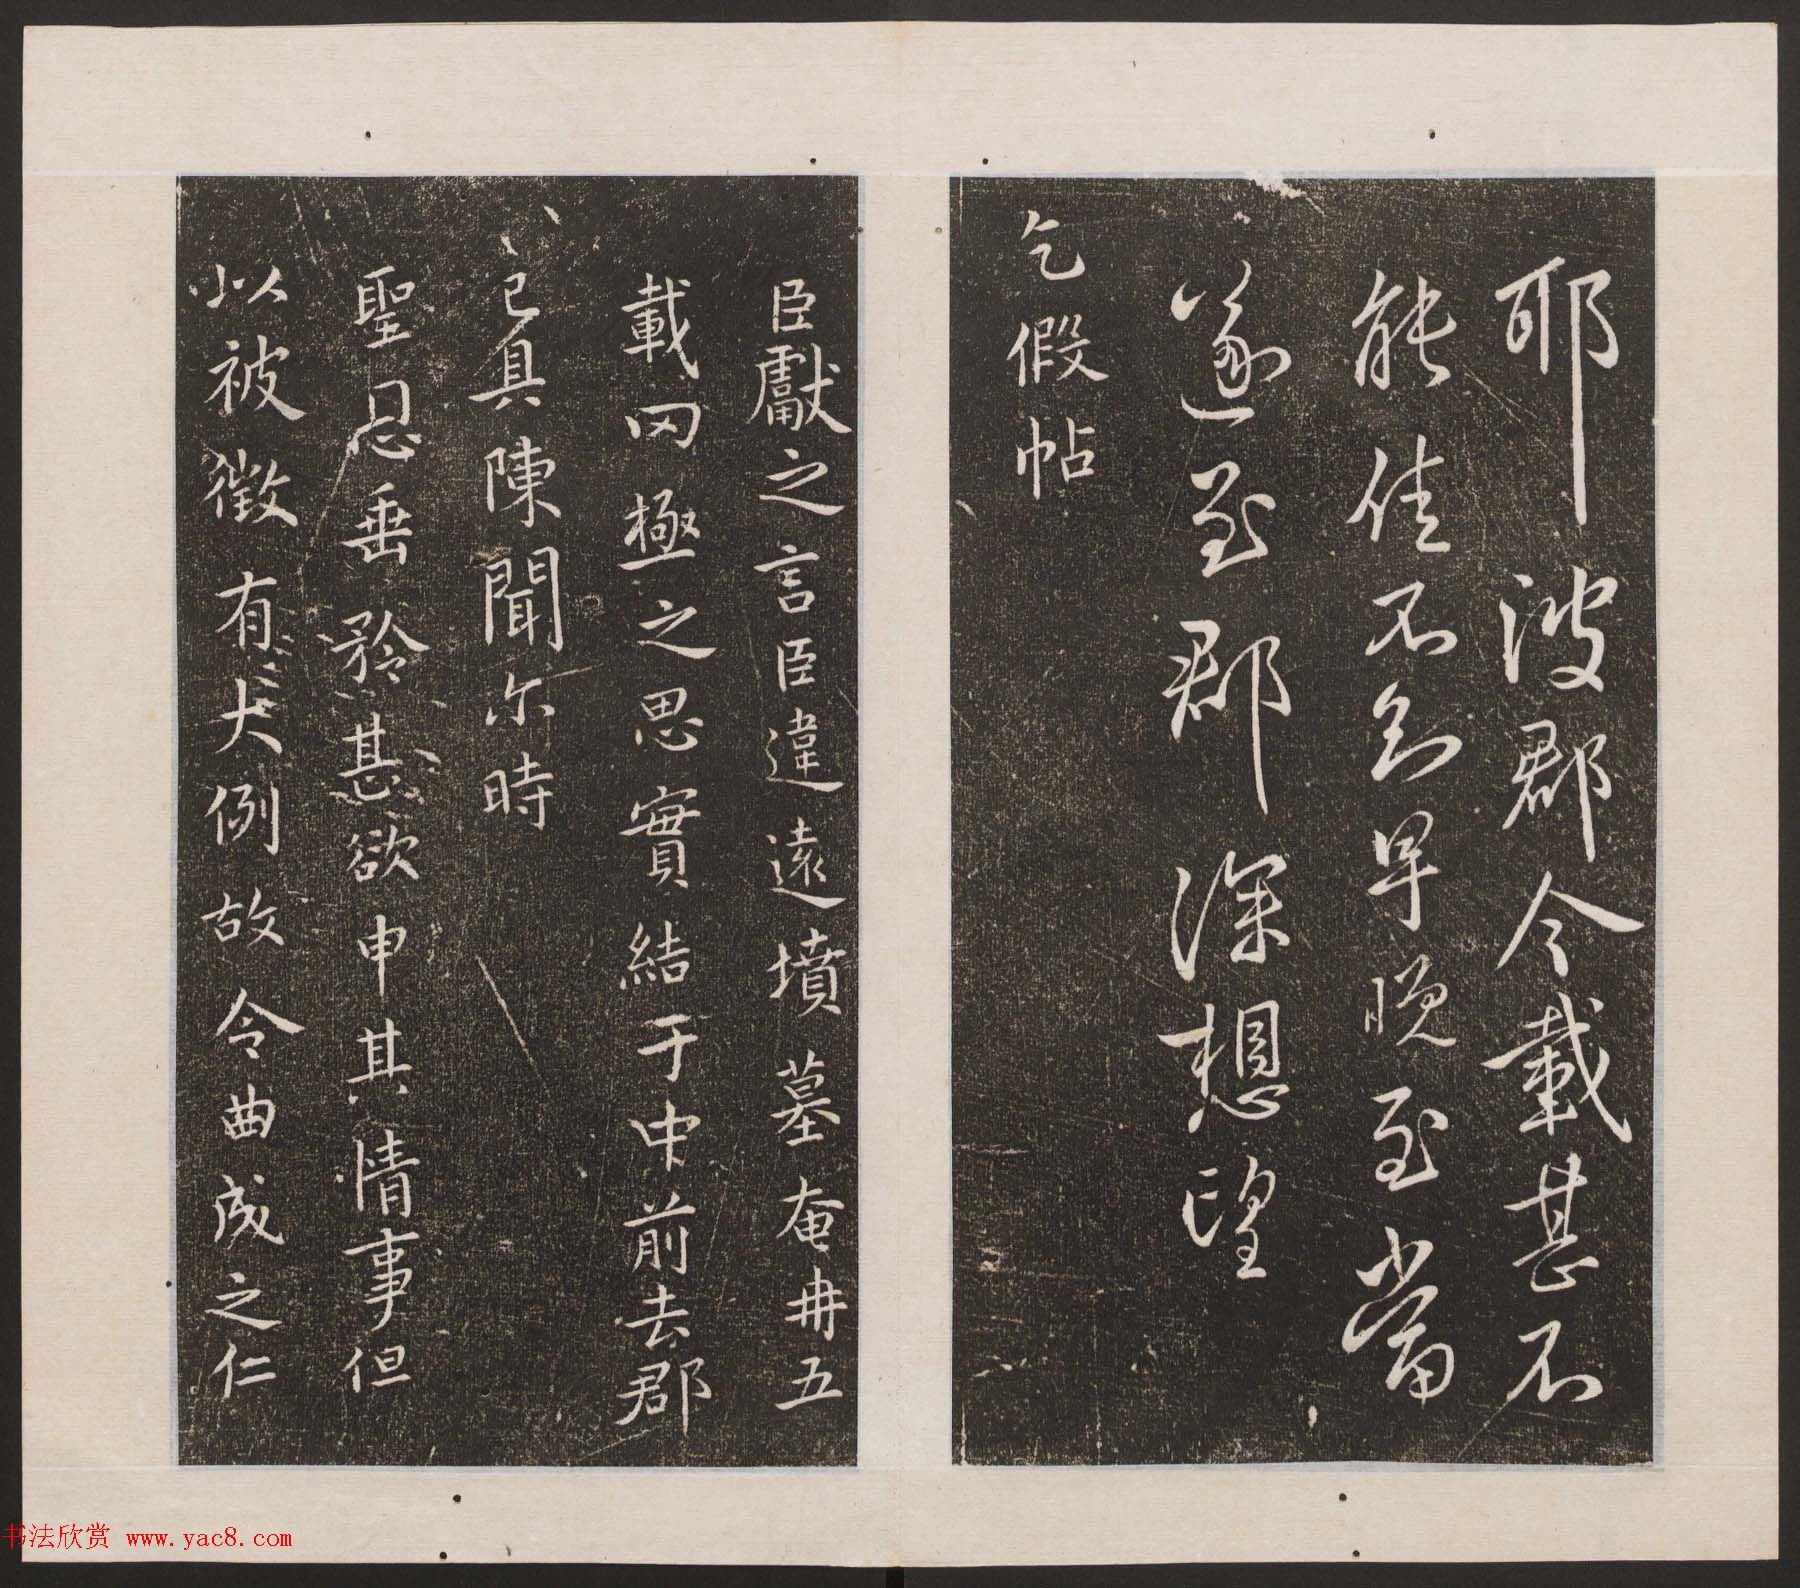 耶彼郡今載甚不
能佳不知早晚至當
遂至郡深想望
乞假帖
臣獻之言臣違遠墳墓奄冉五
載罔極之思實結于中前去郡
已具陳聞尓時
聖恩垂矜甚欲申其情事但
以被徵有大例故令曲成之仁
书法欣赏 www.yac8.com